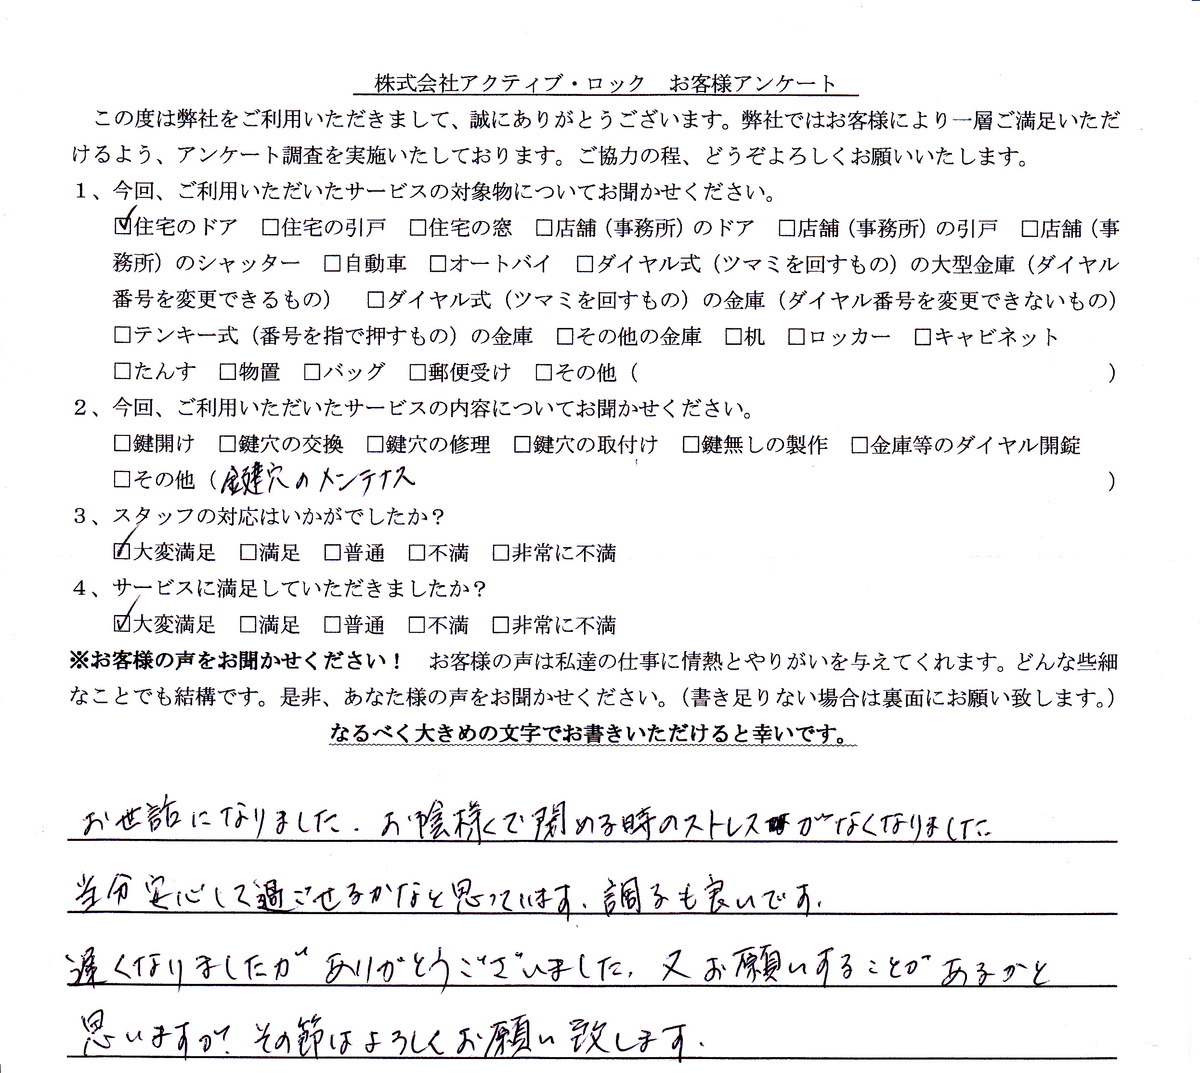 株式会社アクティブ・ロック　お客様アンケート
この度は弊社をご利用いただきまして、誠にありがとうございます。弊社ではお客様により一層ご満足いただ
けるよう、アンケート調査を実施いたしております。ご協力の程、どうぞよろしくお願いいたします。
１、今回、ご利用いただいたサービスの対象物についてお聞かせください。
☑住宅のドア　□住宅の引戸　□住宅の窓　□店舗（事務所）のドア　□店舗（事務所）の引戸　□店舗（事
務所）のシャッター　□自動車　□オートバイ　□ダイヤル式（ツマミを回すもの）の大型金庫（ダイヤル
番号を変更できるもの）　□ダイヤル式（ツマミを回すもの）の金庫（ダイヤル番号を変更できないもの）
□テンキー式（番号を指で押すもの）の金庫　□その他の金庫　□机　□ロッカー　□キャビネット
□たんす　□物置　□バッグ　□郵便受け　□その他（　）
２、今回、ご利用いただいたサービスの内容についてお聞かせください。
□鍵開け　□鍵穴の交換　□鍵穴の修理　□鍵穴の取付け　□鍵無しの製作　□金庫等のダイヤル開錠
□その他（鍵穴のメンテナス）
３、スタッフの対応はいかがでしたか？
☑大変満足　□満足　□普通　□不満　□非常に不満
４、サービスに満足していただきましたか？
☑大変満足　□満足　□普通　□不満　□非常に不満
※お客様の声をお聞かせください！　お客様の声は私達の仕事に情熱とやりがいを与えてくれます。どんな些細
なことでも結構です。是非、あなた様の声をお聞かせください。（書き足りない場合は裏面にお願い致します。）
なるべく大きめの文字でお書きいただけると幸いです。
お世話になりました．お陰様で閉める時のストレスがなくなりました
当分安心して過ごせるかなと思っています．調子も良いです．
遅くなりましたが ありがとうございました．又お願いすることがあるかと
思いますが、その節はよろしくお願い致します．